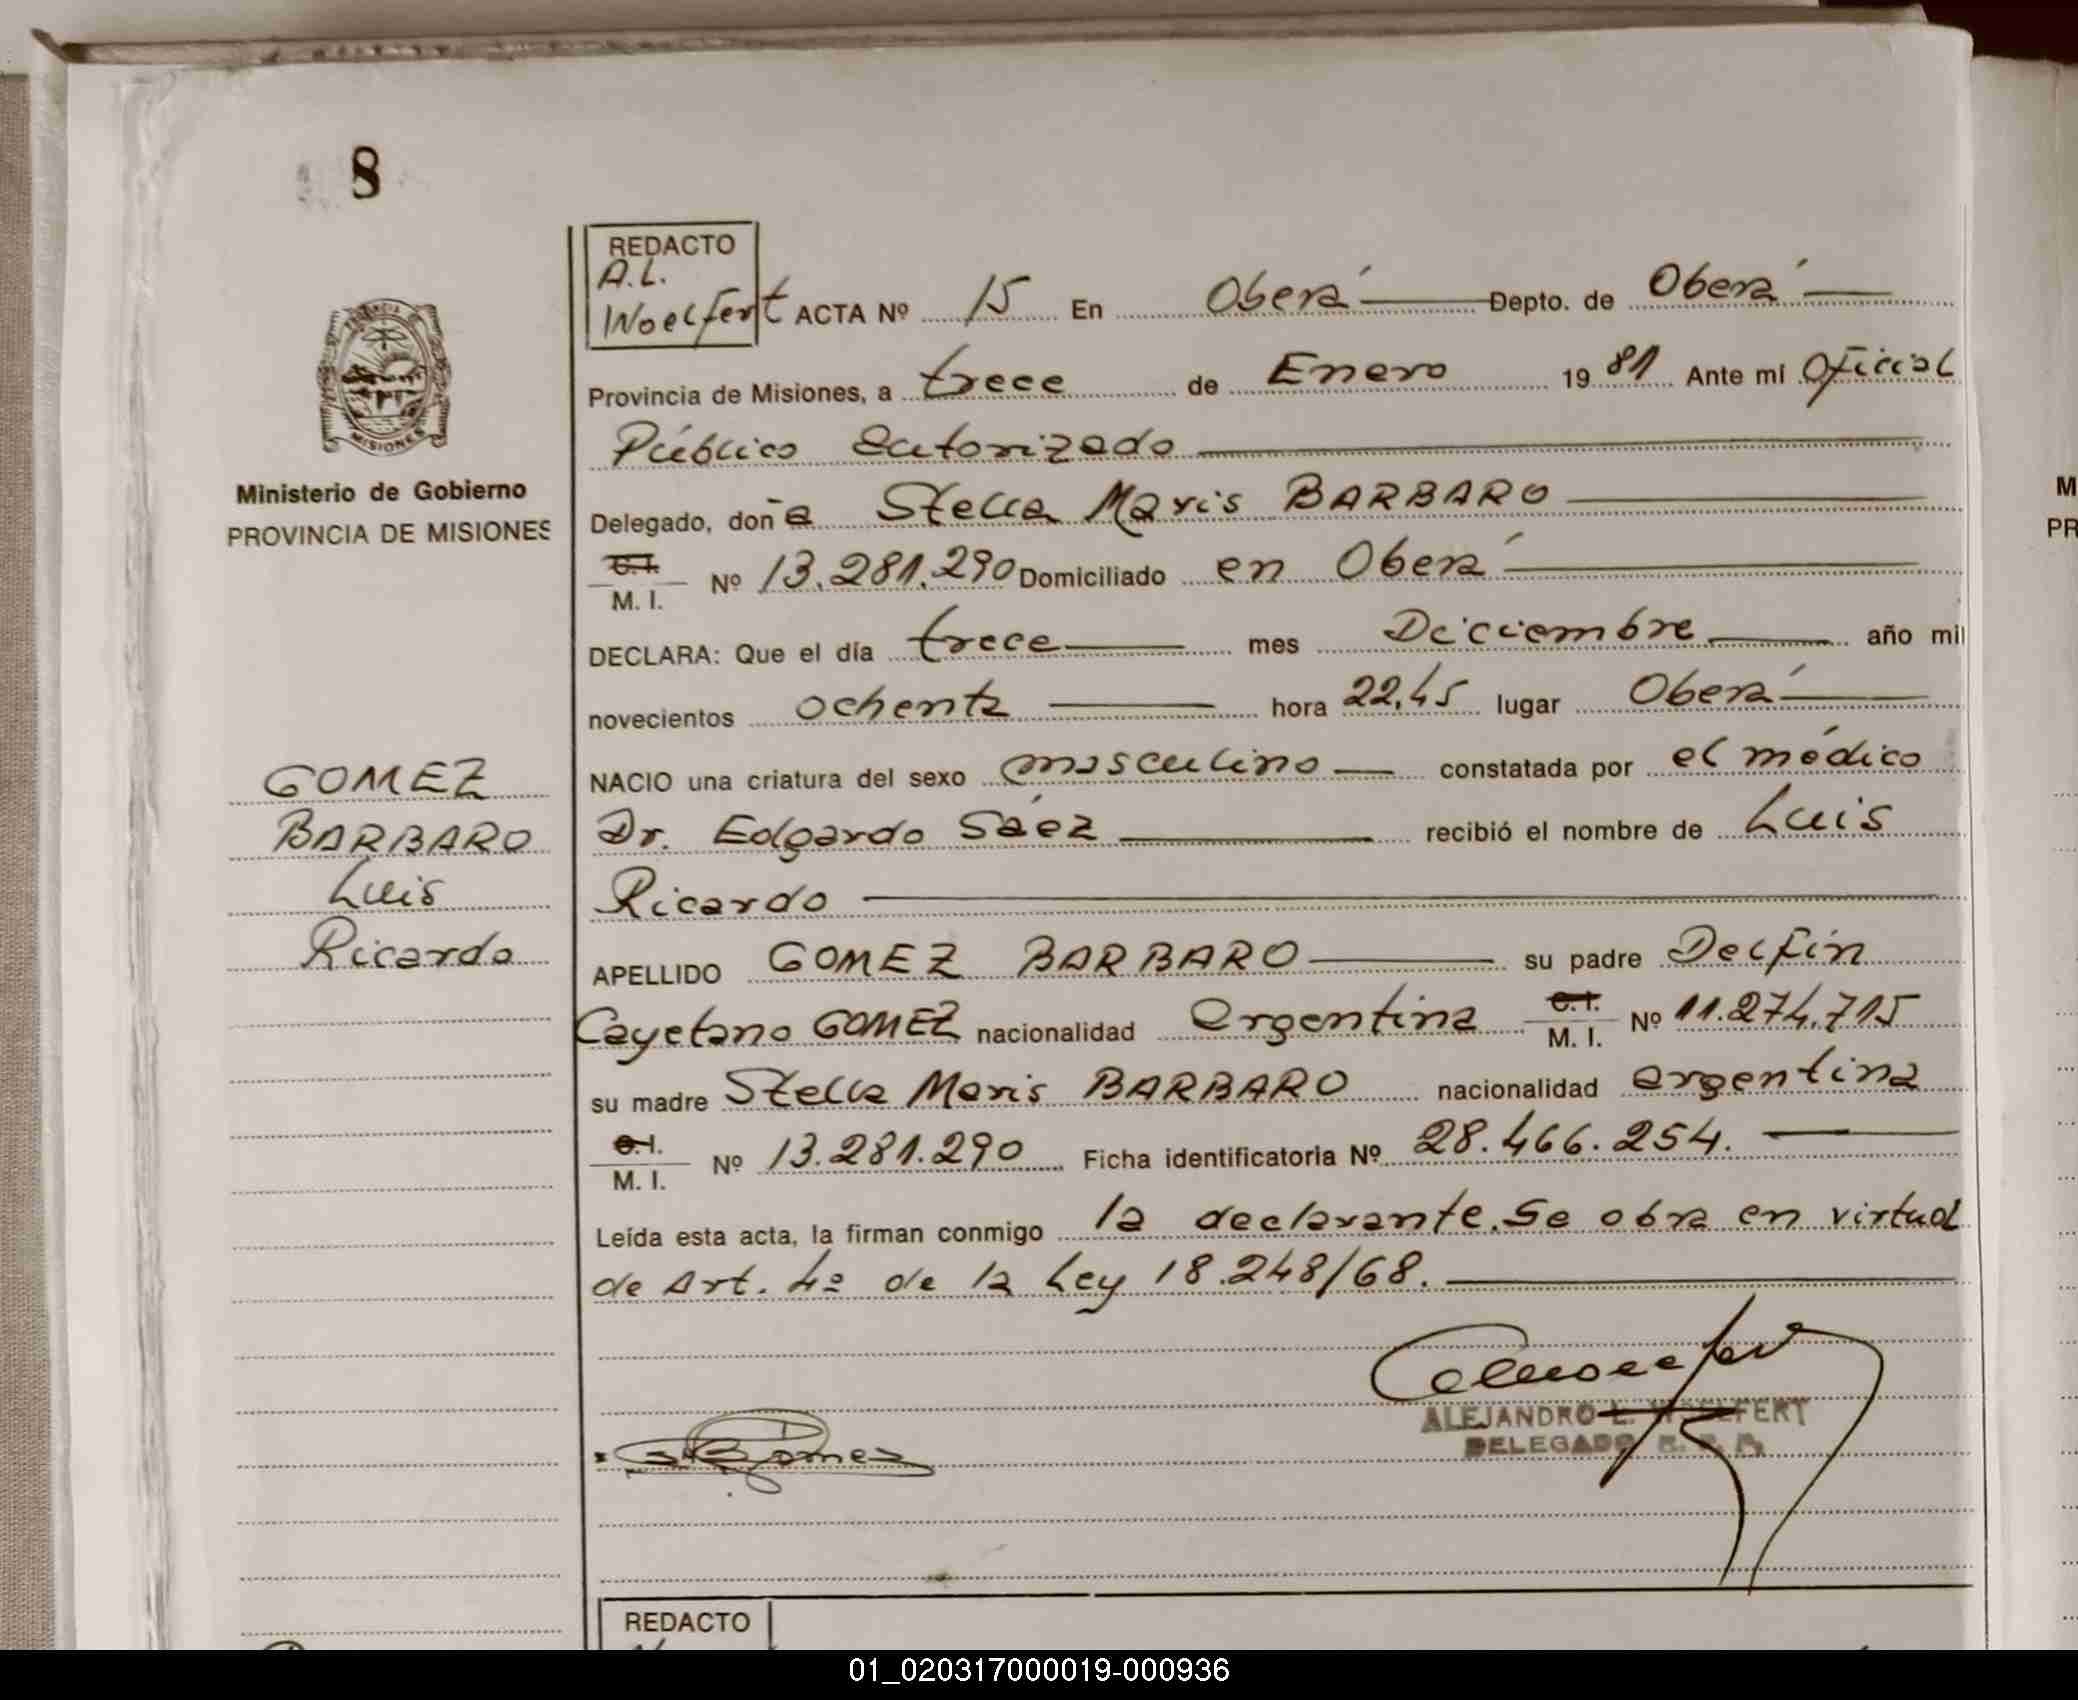 8
REDACTO
A.L.
Woelfert ACTA Nº 15 En Oberá Depto. de Oberá
Provincia de Misiones, a trece de Enero 1981 Ante mí Oficial
Público autorizado
Delegado, doña Stella Maris BARBARO
C.I.
M. I. Nº 13.281.290 Domiciliado en Oberá
DECLARA: Que el día trece mes Diciembre año mil
novecientos ochenta hora 22,45 lugar Oberá
NACIO una criatura del sexo masculino constatada por el médico
Dr. Edgardo Sáez recibió el nombre de Luis
Ricardo
APELLIDO GOMEZ BARBARO su padre Delfín
Cayetano GOMEZ nacionalidad argentina C.I. M. I. Nº 11.274.715
su madre Stella Maris BARBARO nacionalidad argentina
C.I.
M. I. Nº 13.281.290 Ficha identificatoria Nº 28.466.254.
Leída esta acta, la firman conmigo la declarante. Se obra en virtud
de Art. 4º de la Ley 18.248/68.
ALEJANDRO L. WOELFERT
DELEGADO
REDACTO
PROVINCIA DE
MISIONES
Ministerio de Gobierno
PROVINCIA DE MISIONES
GOMEZ
BARBARO
Luis
Ricardo
M
PR
01_020317000019-000936